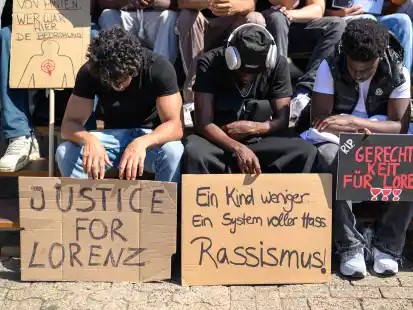 VON HINTEN,
WER WAR
HIER
DIE BEDROHUNG
JUSTICE
FOR
LORENZ
Ein Kind weniger
Ein System voller Hass
Rassismus!
RIP
GERECHTIG
KEIT
FÜR LORE